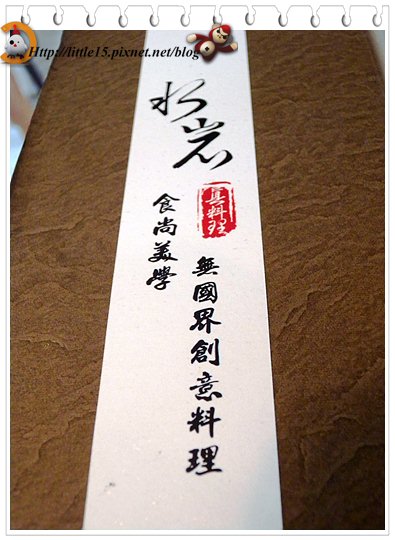 Http://little15.pixnet.net/blog
水岩
真料理
食尚美學
無國界創意料理